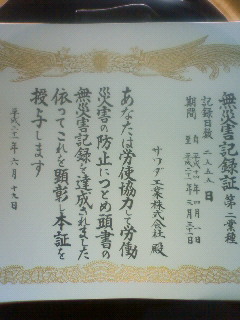 無災害記録証 第二業種
記録日数 二八五五日
期間 自 平成十六年四月一日
至 平成二十一年三月三十一日
サワダ工業株式会社 殿
あなたは労使協力して労働
災害の防止につとめ頭書の
無災害記録を達成されました
依ってこれを顕彰し本証を
授与します
平成二十一年六月十九日